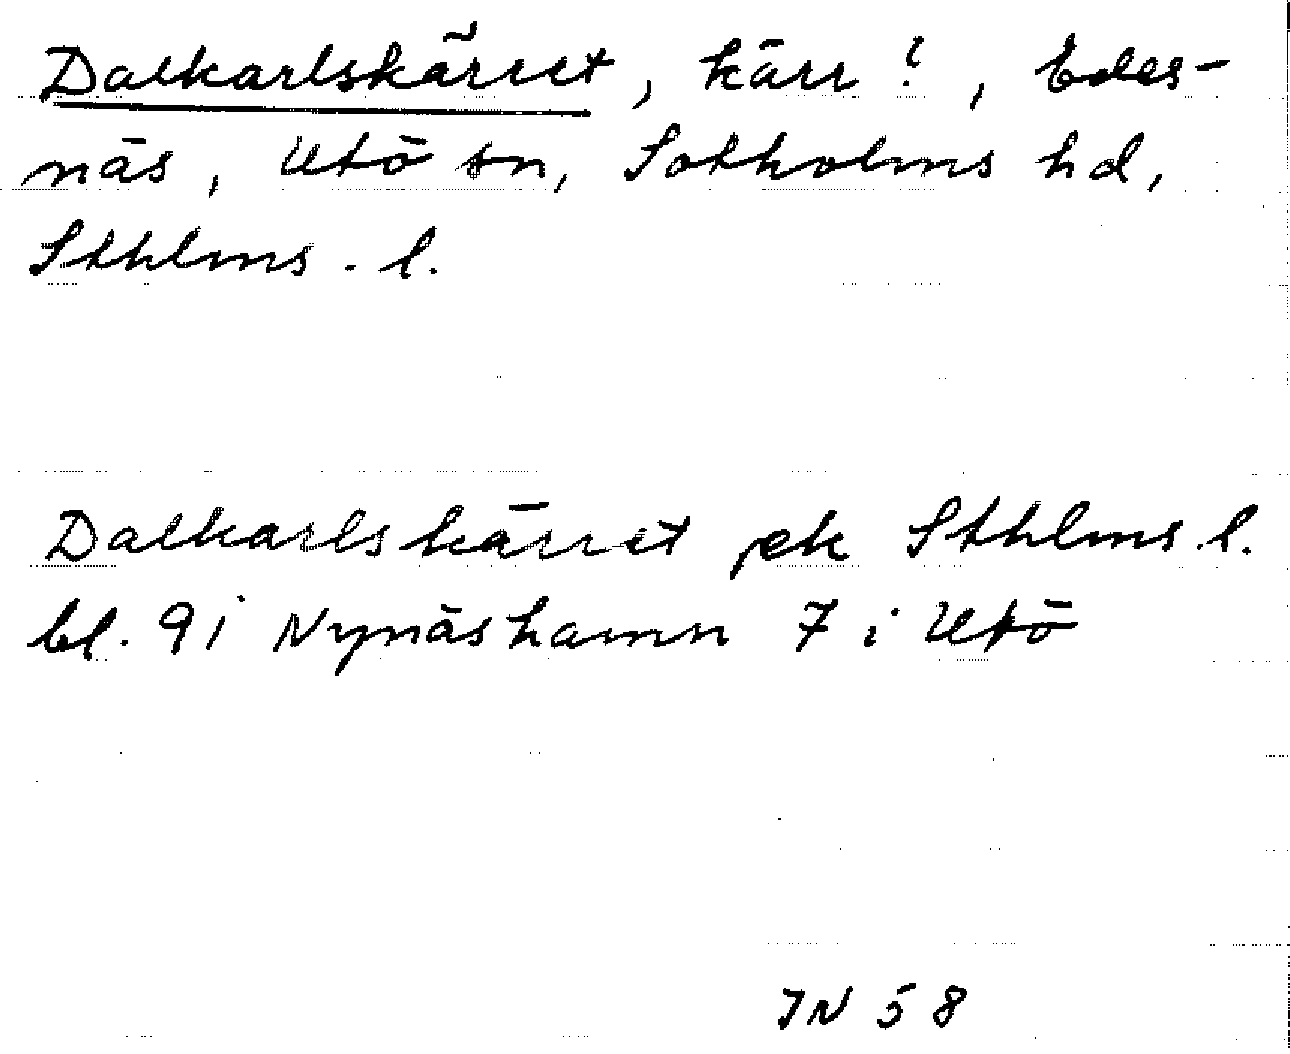 Dalkarlskärret, kärr?, Edes-
näs, Utö sn, Sotholms hd,
Sthlms. l.
Dalkarlskärret ek Sthlms. l.
bl. 91 Nynäshamn 7 i Utö
IN 58